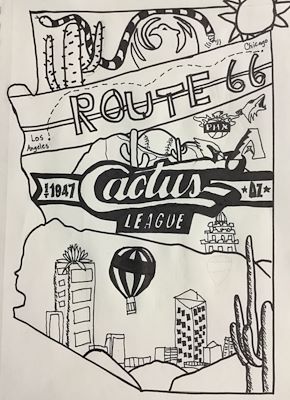 Chicago
ROUTE 66
Los
Angeles
PHX
EST 1947
Cactus
AZ
LEAGUE